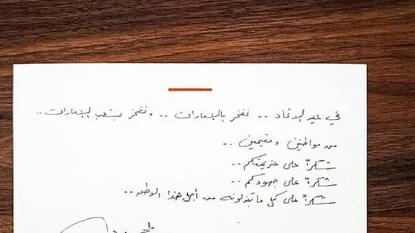 في عيد الاتحاد .. نفخر بالإمارات .. ونفخر بشعب الإمارات ..
من مواطنين ومقيمين ..
شكراً على عزيمتكم ..
شكراً على جهودكم ..
شكراً على كل ما تبذلونه من أجل هذا الوطن ..